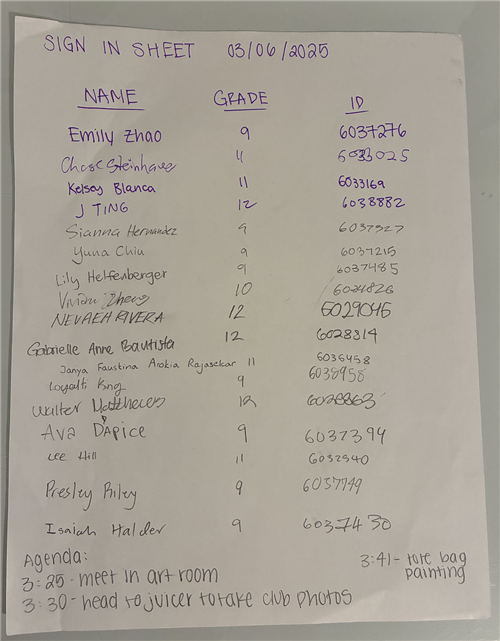 SIGN IN SHEET 03/06/2025
NAME GRADE ID
Emily Zhao 9 6037276
Chase 11
Kelsey Blanca 11 6033169
J TING 12 6038882
Sianna Hernandez 9 6037527
Yuna Chiu 9 6037215
Lily Helfenberger 9 6037485
Vivian Zheng 10 6024826
NEVAEH RIVERA 12
Gabrielle Anne Bautista 12 6028314
Janya Faustina Arokia Rajasekar 11 6036458
Loyalti King 9 6038958
Walter Matthews 12
Ava D'Apice 9 6037394
Lee Hill 11 6032540
Presley Riley 9
Isaiah Halder 9 6037430
Agenda:
3:25 - meet in art room
3:30 - head to juicer to take club photos
3:41 - tote bag
painting